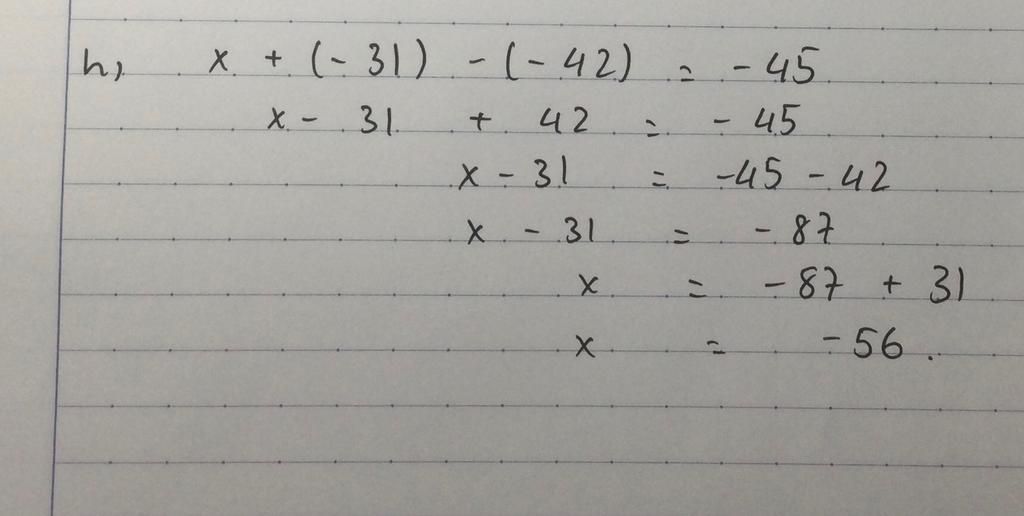 h, x + (- 31) - (- 42) = - 45
x - 31 + 42 = - 45
x - 31 = -45 - 42
x - 31 = - 87
x = - 87 + 31
x = - 56.